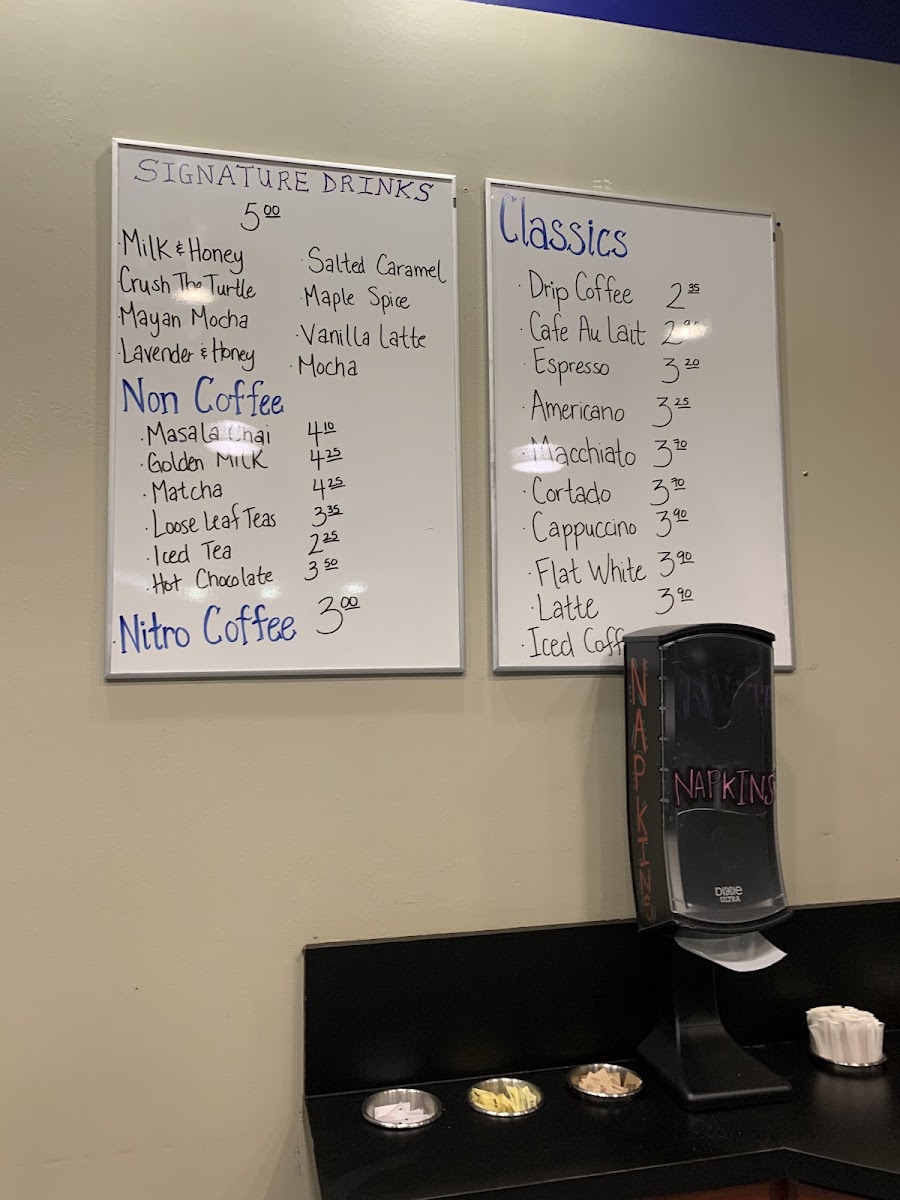 SIGNATURE DRINKS
5 00
·Milk & Honey
Crush The Turtle
·Mayan Mocha
·Lavender & Honey
·Salted Caramel
·Maple Spice
·Vanilla Latte
·Mocha
Non Coffee
·Masala Chai 4 10
·Golden Milk 4 25
·Matcha 4 25
·Loose Leaf Teas 3 35
·Iced Tea 2 25
·Hot Chocolate 3 50
·Nitro Coffee 3 00
Classics
·Drip Coffee 2 35
·Cafe Au Lait
·Espresso 3 20
·Americano 3 25
·Macchiato 3 70
·Cortado 3 70
·Cappuccino 3 90
·Flat White 3 90
·Latte 3 90
·Iced Coff
NAPKINS
NAPKINS
Dixie
ULTRA